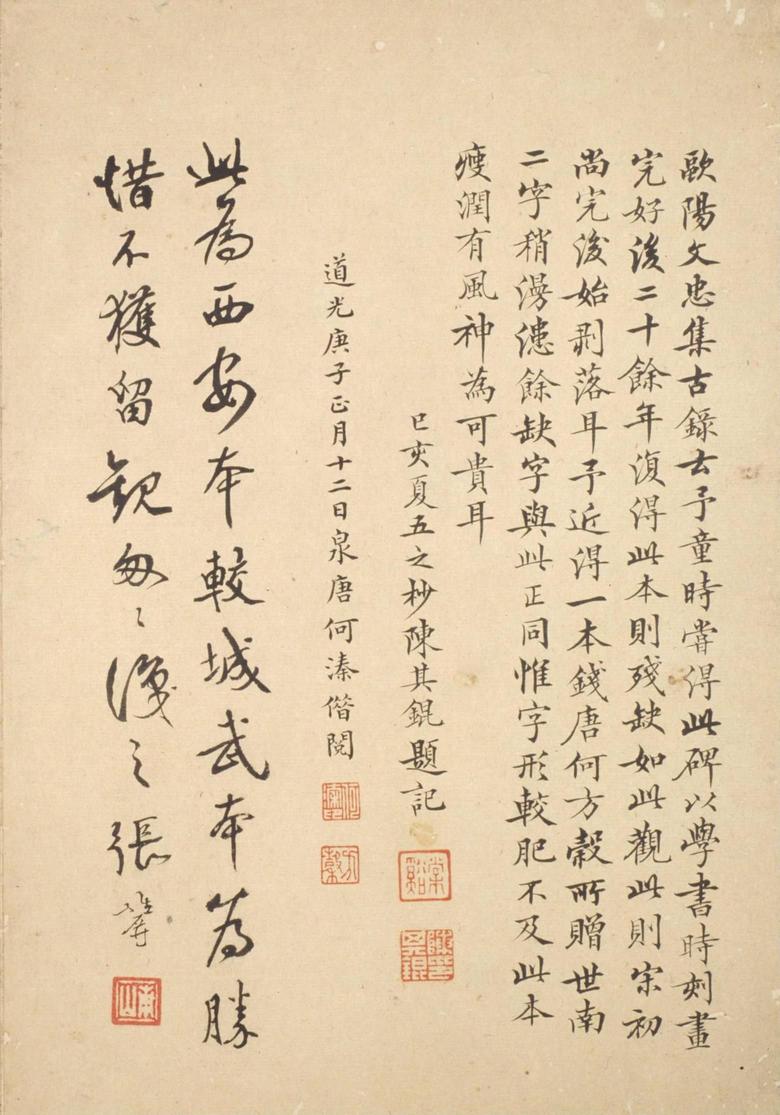 歐陽文忠集古錄云予童時嘗得此碑以學書時刻畫
完好後二十餘年復得此本則殘缺如此觀此則宋初
尚完後始剥落耳予近得一本錢唐何方穀所贈世南
二字稍漫漶餘缺字與此正同惟字形較肥不及此本
瘦潤有風神為可貴耳
己亥夏五之杪陳其錕題記
道光庚子正月十二日泉唐何溱偕閱
此為西安本較城武本為勝
惜不獲留觀匆〻識之張